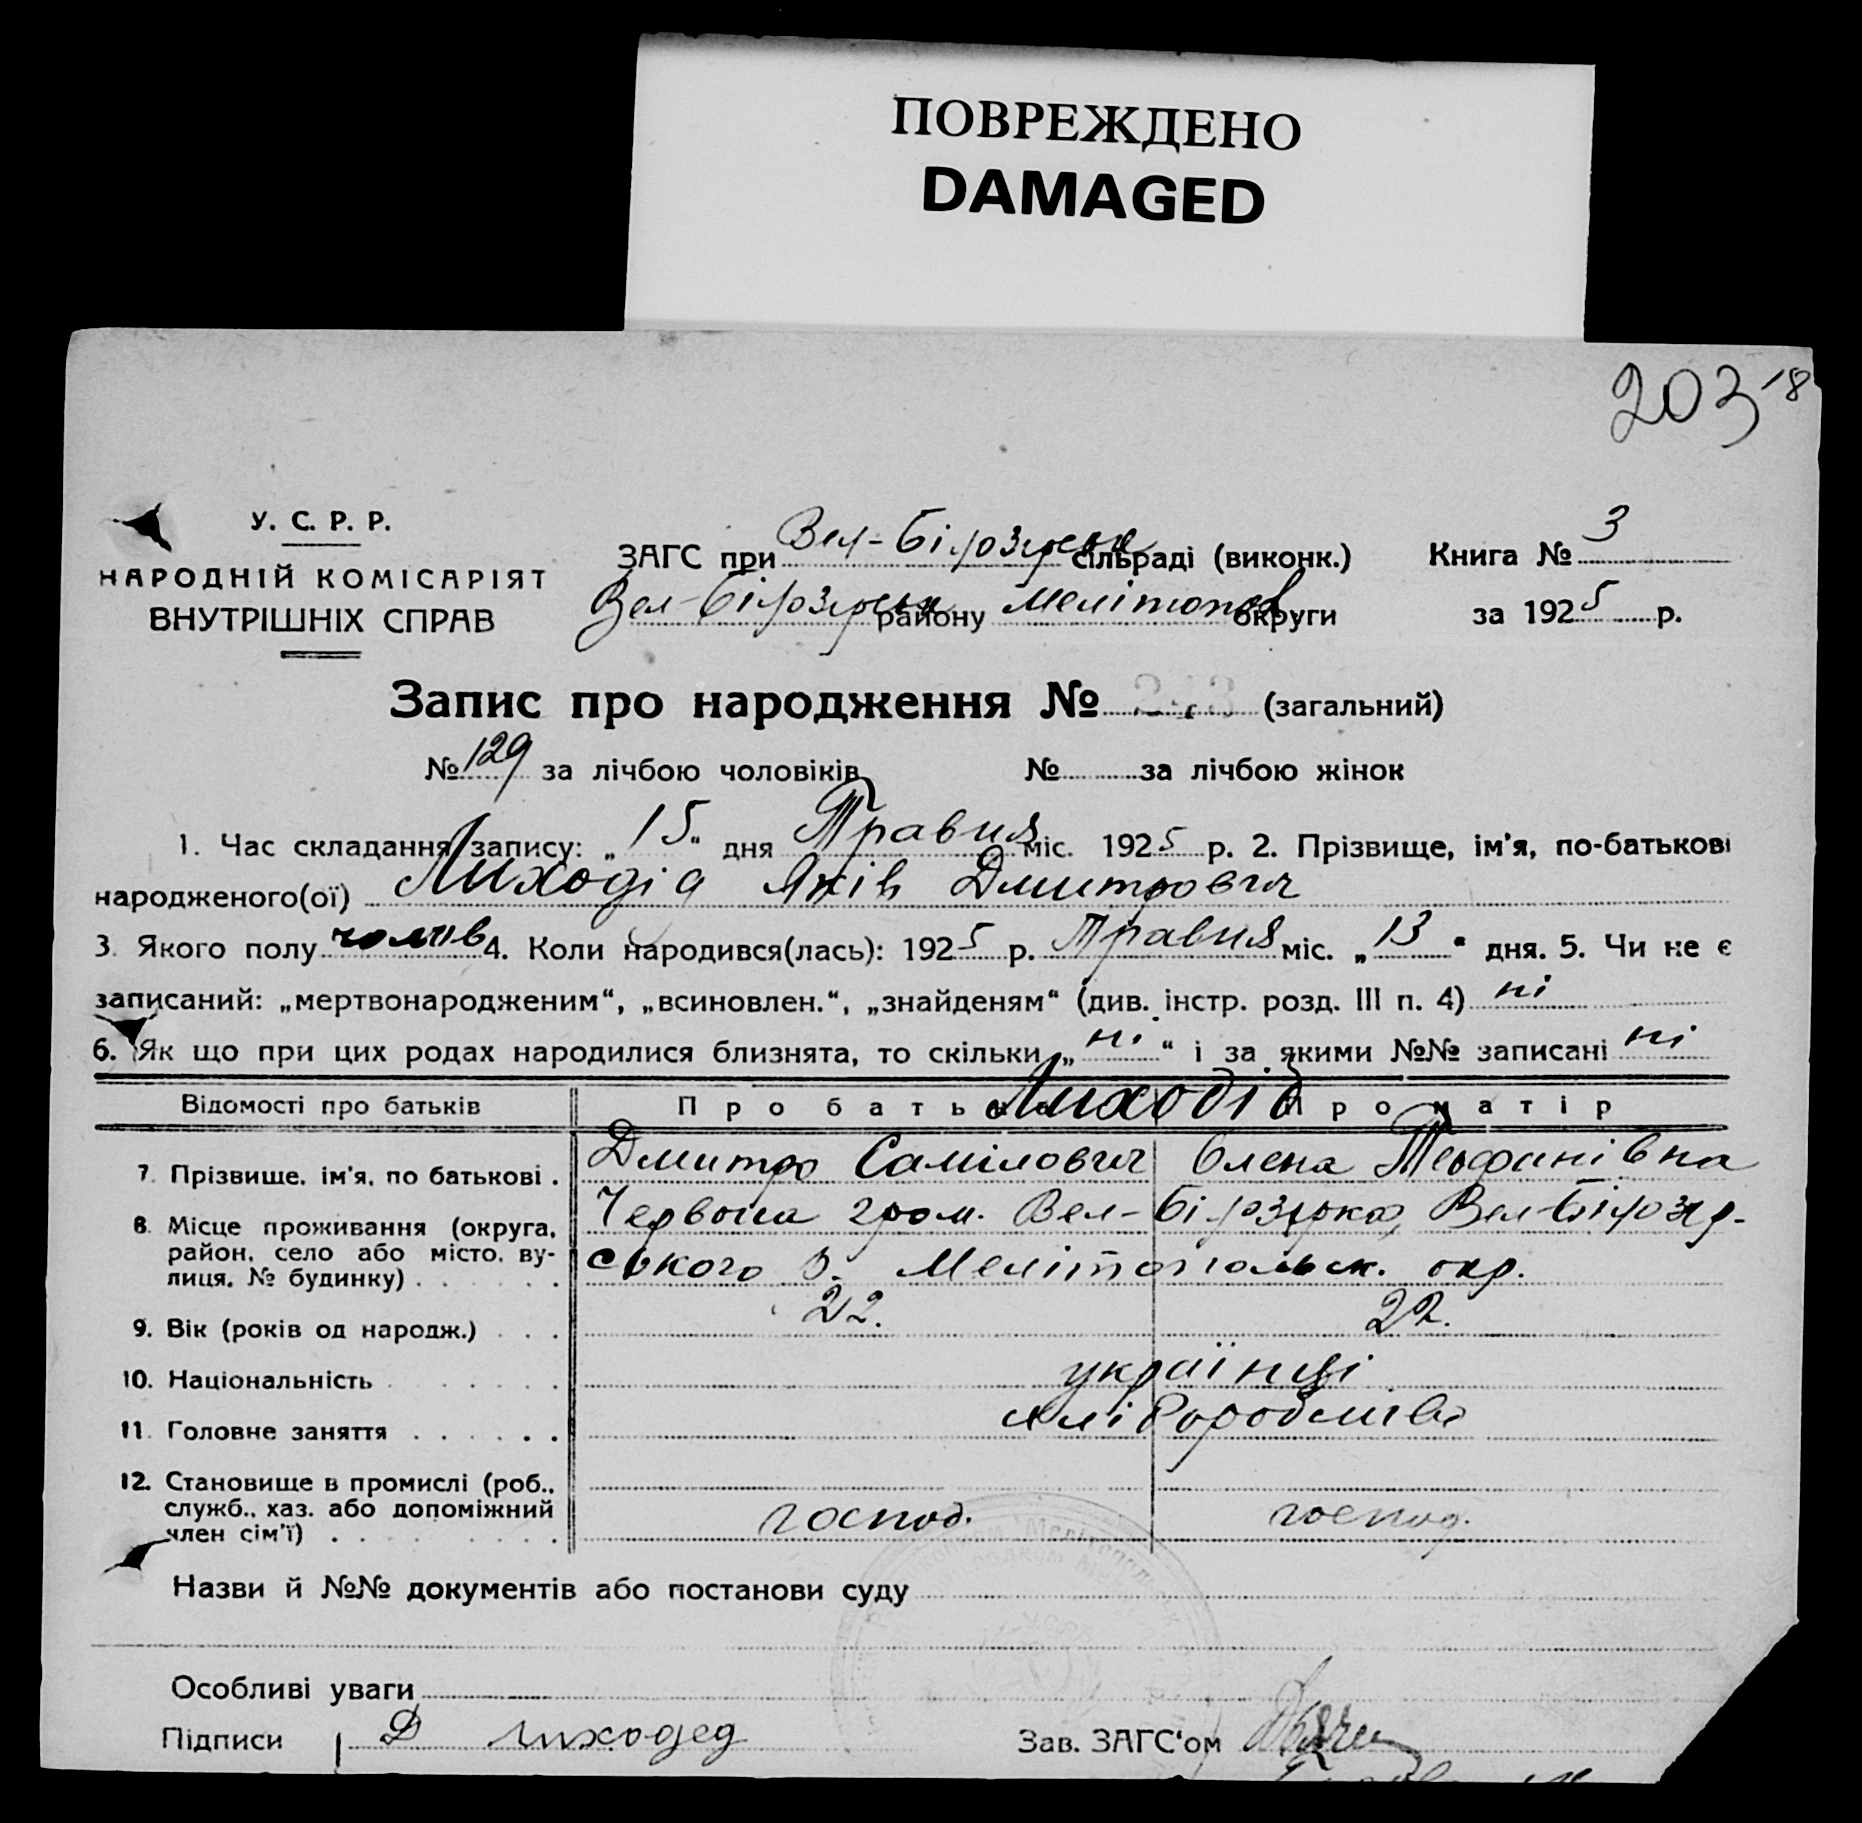 ПОВРЕЖДЕНО
DAMAGED
203 18
У. С. Р. Р.
НАРОДНІЙ КОМІСАРІЯТ
ВНУТРІШНІХ СПРАВ
ЗАГС при Вел-Білозірськ сільраді (виконк.)
Вел-Білозірськ району Мелітопол округи
Книга № 3
за 1925 р.
Запис про народження № 243 (загальний)
№ 129 за лічбою чоловіків № за лічбою жінок
1. Час складання запису: „15" дня Травня міс. 1925 р. 2. Прізвище, ім'я, по-батькові
народженого(ої) Лиходід Яків Дмитрович
3. Якого полу чолов 4. Коли народився(лась): 1925 р. Травня міс. „13" дня. 5. Чи не є
записаний: „мертвонародженим“, „всиновлен.“, „знайденям“ (див. інстр. розд. III п. 4) ні
6. Як що при цих родах народилися близнята, то скільки „ні“ і за якими №№ записані ні
Відомості про батьків Про батька Лиходід Про матір
7. Прізвище, ім'я, по батькові . Дмитро Самілович Олена Теофанівна
8. Місце проживання (округа, район, село або місто, ву-
лиця, № будинку) . . . .
Червона гром. Вел-Білозірка, Вел-Білозір-
ського р. Мелітопольськ. окр.
9. Вік (років од народж.) . . . 22. 22.
10. Національність . . . . . . українці
11. Головне заняття . . . . . . хліборобство
12. Становище в промислі (роб.,
служб., хаз. або допоміжний
член сім'ї) . . . . . . . господ. господ.
Назви й №№ документів або постанови суду
Особливі уваги
Підписи Д Лиходед Зав. ЗАГС'ом